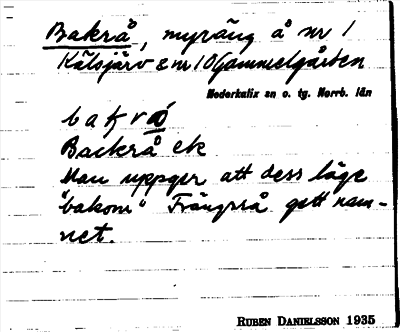 Bakrå, myräng å nr 1
Kälsjärv & nr 10 Gammelgården
Nederkalix sn o. tg. Norrb. län
bakrǻ
Backrå ek
Man uppger att dess läge
"bakom" Trångså gett nam-
net.
RUBEN DANIELSSON 1935